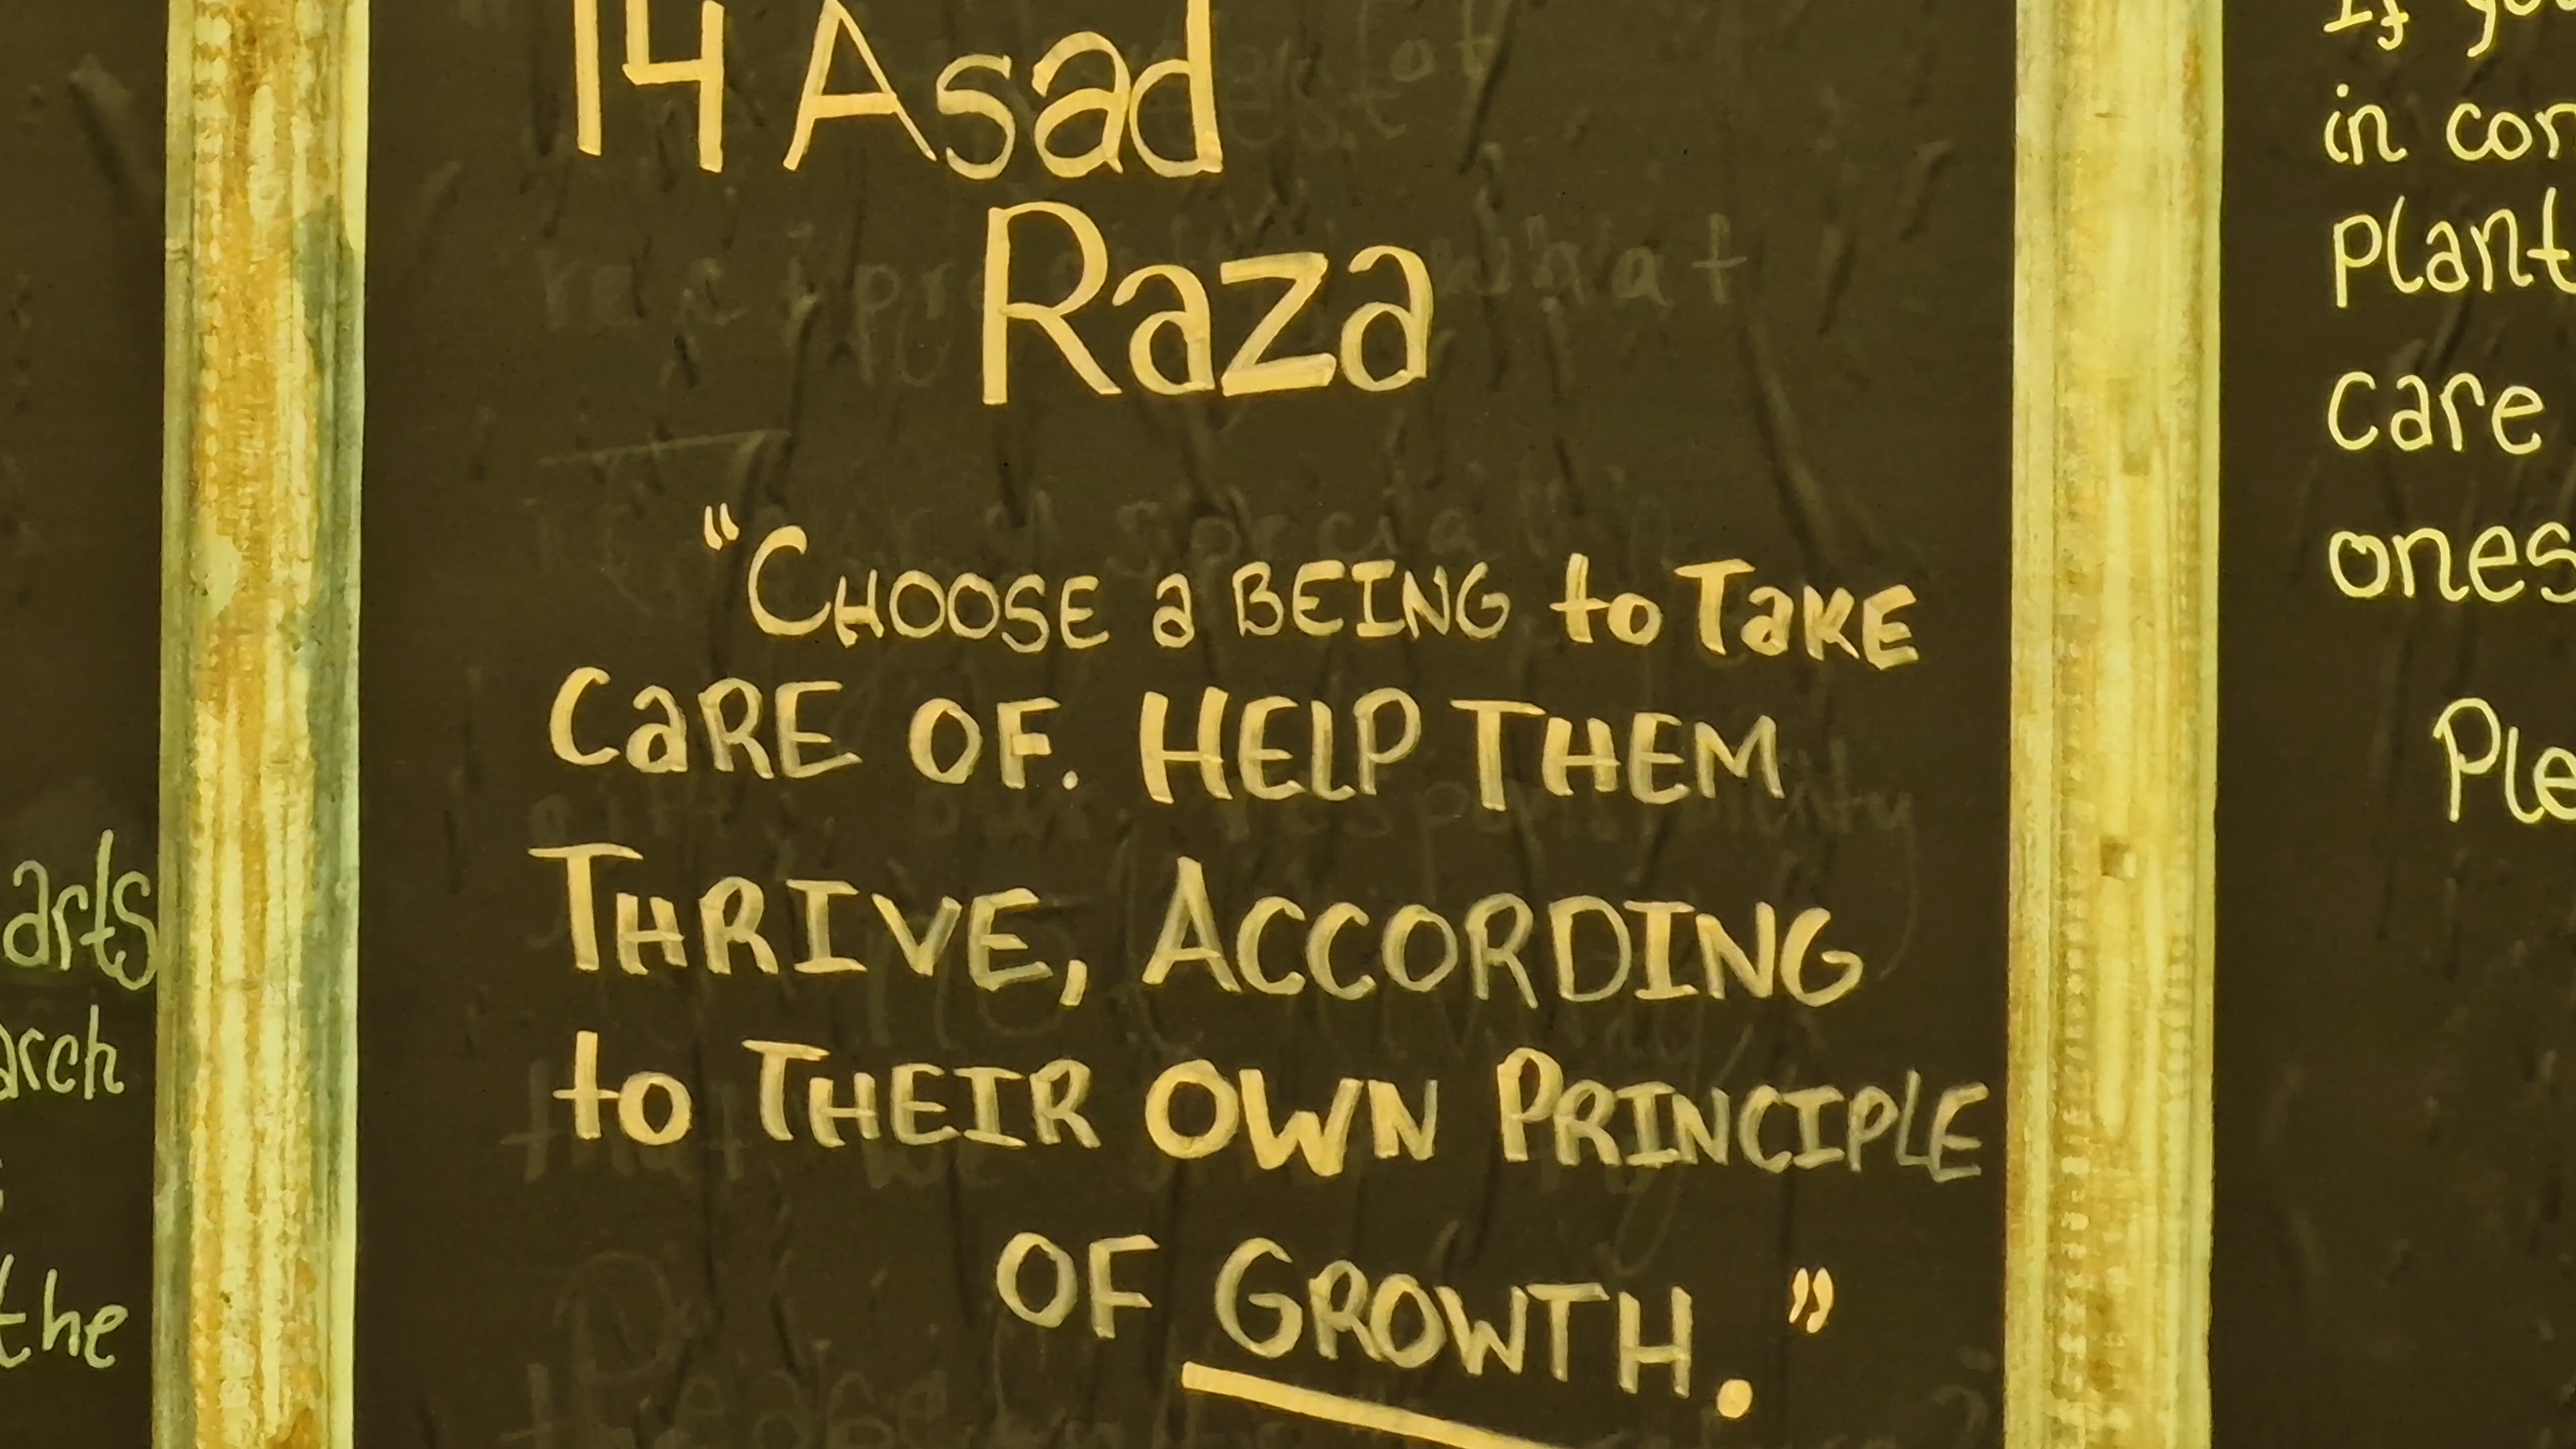 arts
arch
the
14 Asad
Raza
"CHOOSE a BEING to TaKE
CaRE OF. HELP THEM
THRIVE, ACCORDING
to THEIR OWN PRINCIPLE
OF GROWTH."
If you
in con
plant
care
ones
Ple